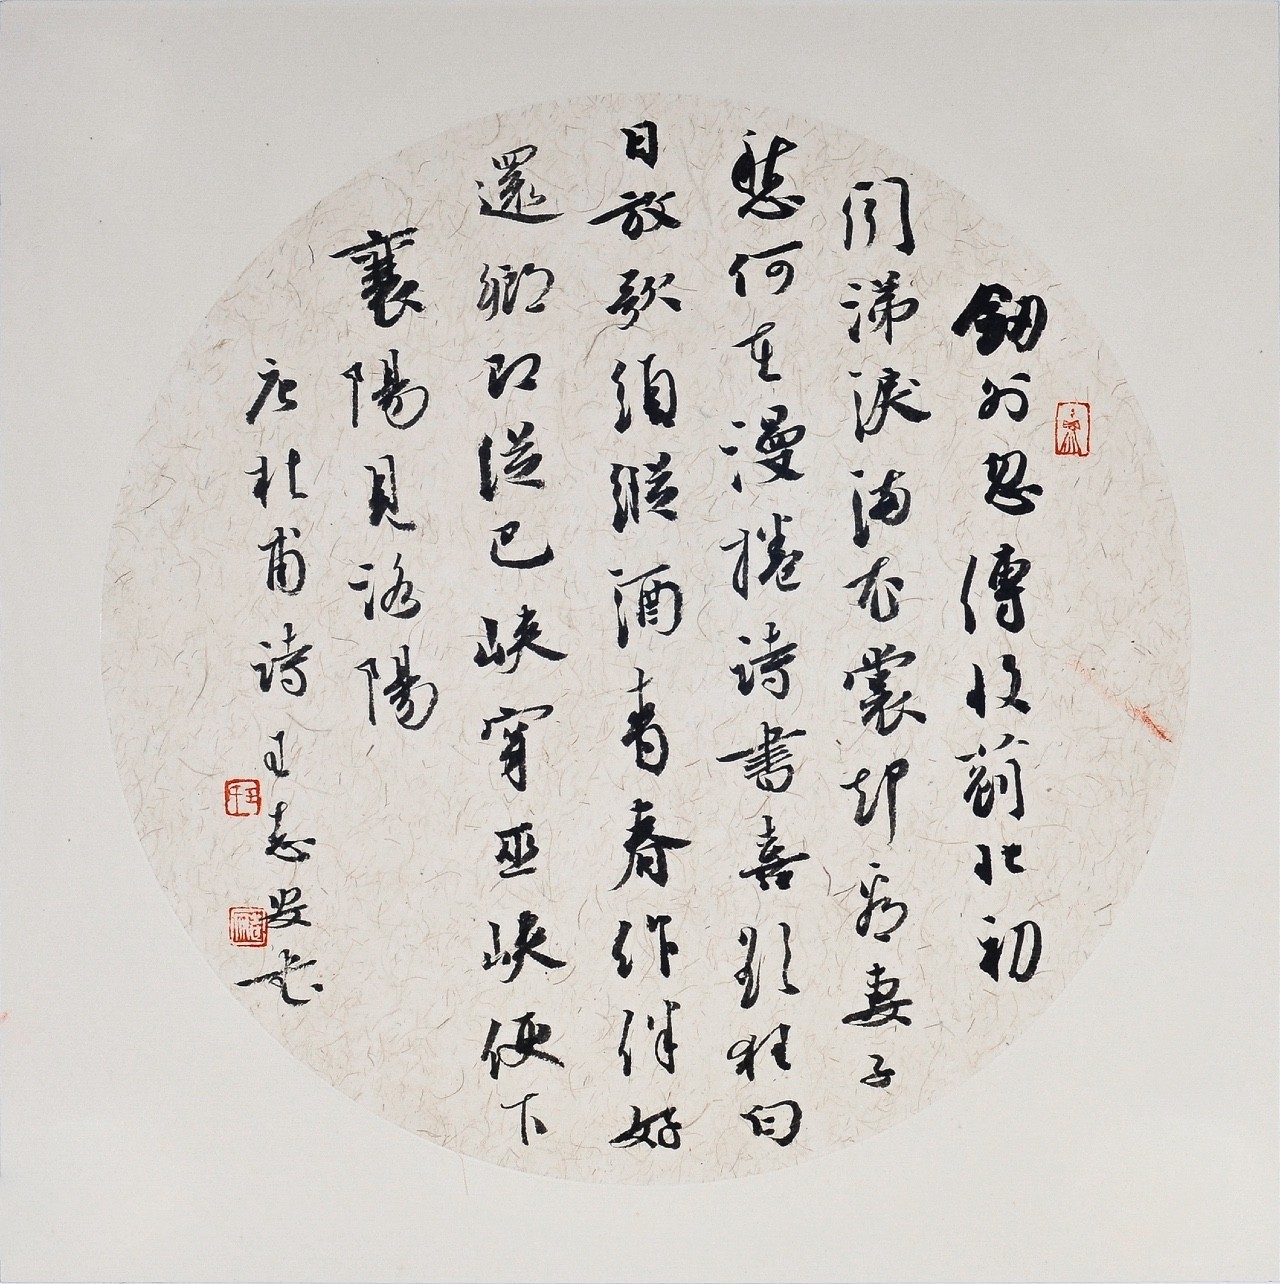 釼外忽傳收薊北初
聞涕淚滿衣裳却看妻子
愁何在漫捲詩書喜欲狂白
日放歌須縱酒青春作伴好
還鄉即從巴峽穿巫峽便下
襄陽見洛陽
唐杜甫詩王志安書